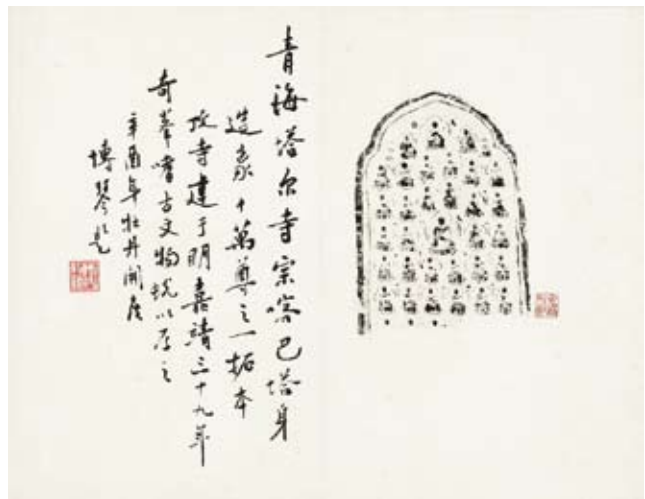 青海塔尔寺宗喀巴塔身
造象十萬尊之一拓本
攷寺建于明嘉靖三十九年
奇峯嗜古文物悦以存之
辛酉年牡丹開候
博琴題